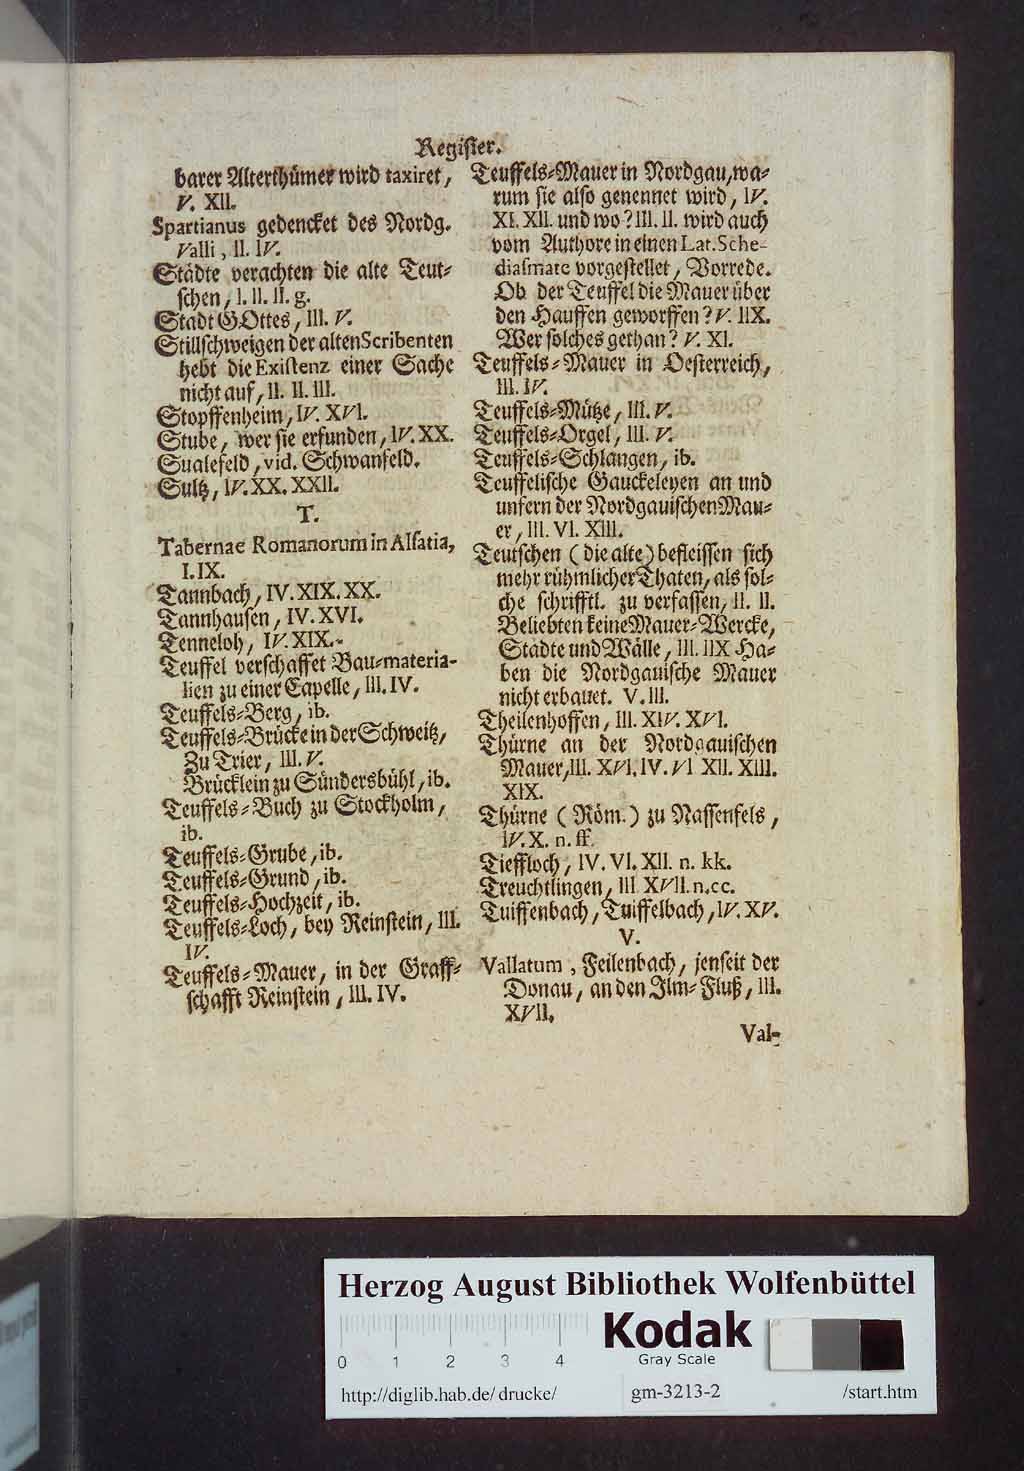 Register.
barer Alterthümer wird taxiret,
V. XII.
Spartianus gedencket des Nordg.
Valli, II. IV.
Städte verachten die alte Teut-
schen, I. II. II. g.
Stadt GOttes, III. V.
Stillschweigen der alten Scribenten
hebt die Existenz einer Sache
nicht auf, II. II. III.
Stopffenheim, IV. XVI.
Stube, wer sie erfunden, IV. XX.
Sualefeld, vid. Schwanfeld.
Sultz, IV. XX. XXII.
T.
Tabernae Romanorum in Alsatia,
I. IX.
Tannbach, IV. XIX. XX.
Tannhausen, IV. XVI.
Tenneloh, IV. XIX.
Teuffel verschaffet Bau-materia-
lien zu einer Capelle, III. IV.
Teuffels-Berg, ib.
Teuffels-Brücke in der Schweitz,
Zu Trier, III. V.
Brücklein zu Sündersbühl, ib.
Teuffels-Buch zu Stockholm,
ib.
Teuffels-Grube, ib.
Teuffels-Grund, ib.
Teuffels-Hochzeit, ib.
Teuffels-Loch, bey Reinstein, III.
IV.
Teuffels-Mauer, in der Graff-
schafft Reinstein, III. IV.
Teuffels-Mauer in Nordgau, wa-
rum sie also genennet wird, IV.
XI. XII. und wo? III. II. wird auch
vom Authore in einen Lat. Sche-
diasmate vorgestellet, Vorrede.
Ob der Teuffel die Mauer über
den Hauffen geworffen? V. IIX.
Wer solches gethan? V. XI.
Teuffels-Mauer in Oesterreich,
III. IV.
Teuffels-Mütze, III. V.
Teuffels-Orgel, III. V.
Teuffels-Schlangen, ib.
Teuffelische Gauckeleyen an und
unfern der Nordgauischen Mau-
er, III. VI. XIII.
Teutschen (die alte) befleissen sich
mehr rühmlicher Thaten, als sol-
che schrifftl. zu verfassen, II. II.
Beliebten keine Mauer-Wercke,
Städte und Wälle, III. IIX Ha-
ben die Nordgauische Mauer
nicht erbauet. V. III.
Theilenhoffen, III. XIV. XVI.
Thürne an der Nordgauischen
Mauer, III. XVI. IV. VI XII. XIII.
XIX.
Thürne (Röm.) zu Nassenfels,
IV. X. n. ff.
Tieffloch, IV. VI. XII. n. kk.
Treuchtlingen, III. XVII. n. cc.
Tuiffenbach, Tuiffelbach, IV. XV.
V.
Vallatum, Feilenbach, jenseit der
Donau, an den Ilm-Fluß, III.
XVII.
Val-
Herzog August Bibliothek Wolfenbüttel
0 1 2 3 4
Kodak
Gray Scale
http://diglib.hab.de/drucke/
gm-3213-2
/start.htm